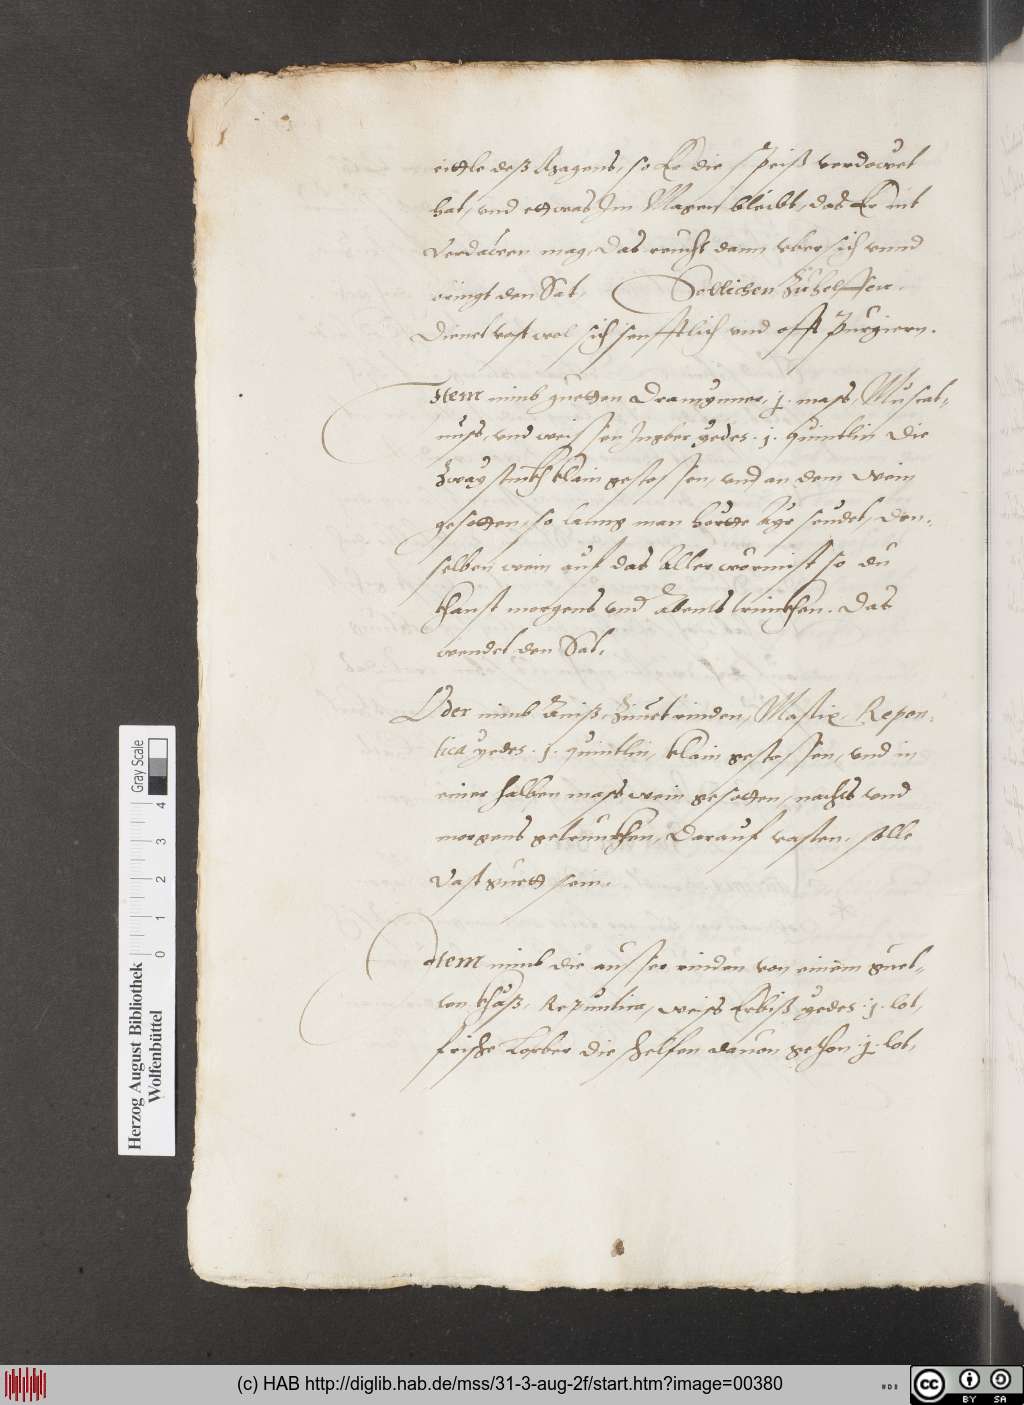 deß Magens, so Er die speiß verdewet
hat, und etwas Im Magen bleibt, das Er nit
verdawen mag, Das reucht dann ubersich unnd
bringt den Sat, Sollichen zuhelffen.
Dienet vast wol sich senfftlich und offt purgiern.
Item nimb guetten Dramynner, j. mass, Muscat-
nuss, und weissen Ingber yedes .j. quintlin die
zway stuckh klain gestossen, und an dem wein
gesotten, so lanng man hertte Ayr seudet, Den-
selben wein auf das Aller wermist so du
khanst morgens und abents trinckhen. Das
wendet den Sat,
Oder nimb Aniß, Zimetrinden, Mastix, Repon-
tica yedes .j. quintlin, klain gestossen, und in
einer halben mass wein gesotten, nachts unnd
morgens getrunckhen, Darauf vasten, solle
vast guett sein.
Item nimb die ausser rinden von einem guet-
ten khäß, Repontica, weiss Erbiß yedes .j. lot,
frische Lorber die schelfen davon gethon .j. lot,
Herzog August Bibliothek
Wolfenbüttel
0 1 2 3 4
Gray Scale
(c) HAB http://diglib.hab.de/mss/31-3-aug-2f/start.htm?image=00380
cc BY SA